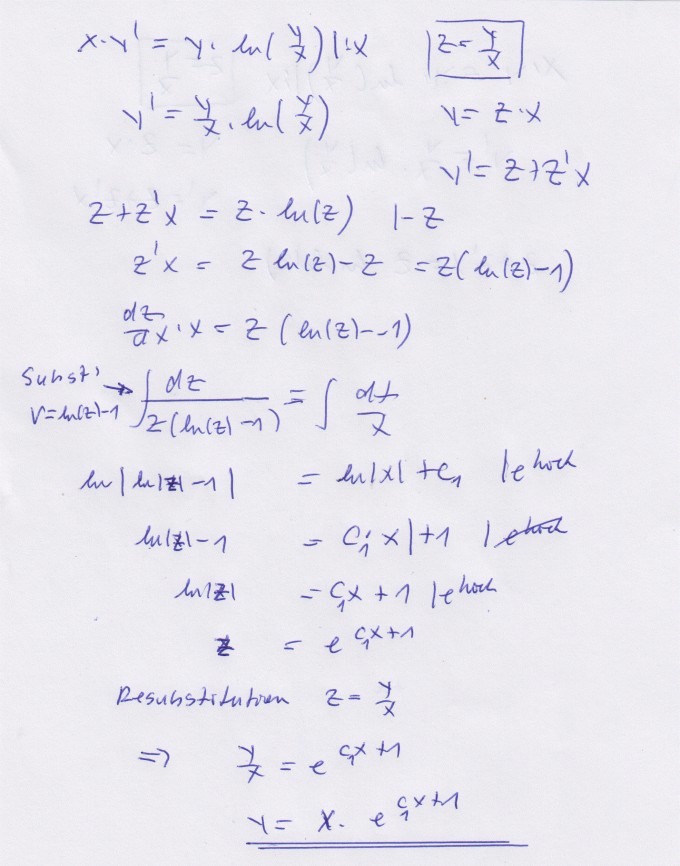 x·y' = y· ln(y/x) |:x z=y/x
y' = y/x · ln(y/x) y= z·x
y' = z+z'x
z+z'x = z· ln(z) |-z
z'x = z ln(z)-z = z(ln(z)-1)
dz/dx ·x = z (ln(z)--1)
Subst: v=ln(z)-1 → ∫ dz/(z(ln(z)-1)) = ∫ dx/x
ln|ln|z|-1| = ln|x| +c₁ |e hoch
ln|z|-1 = c₁· x |+1 |e hoch
ln|z| = c₁x +1 |e hoch
z = e^(c₁x+1)
Resubstitution z= y/x
=> y/x = e^(c₁x+1)
y= x· e^(c₁x+1)